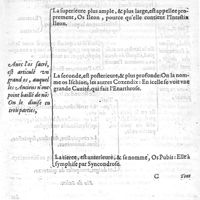 La superieure plus ample, & plus large, est appellee pro-
prement, Os Ileon, pource qu'elle contient l'Intestin
Ileon.
Auec l'os sacré,
est articulé vn
grand os, auquel
les Anciens n'im-
posent baillé de nõ.
On le diuise en
trois parties,
La seconde, est posterieure, & plus profonde: On la nom-
me os Ischion, les autres Coxendix: En icelle se voit vne
grande Cauité, qui fait l'Enarthrose.
La tierce, est anterieure, & se nomme, Os Pubis: Elle a
symphise par Syncondrose.
C